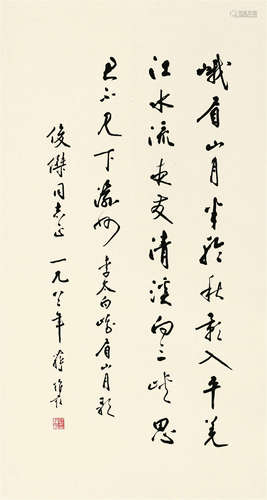 峨眉山月半轮秋影入平羌
江水流夜发清溪向三峡思
君不见下渝州 李太白峨眉山月歌
俊傑同志正 一九八三年 蒋维崧